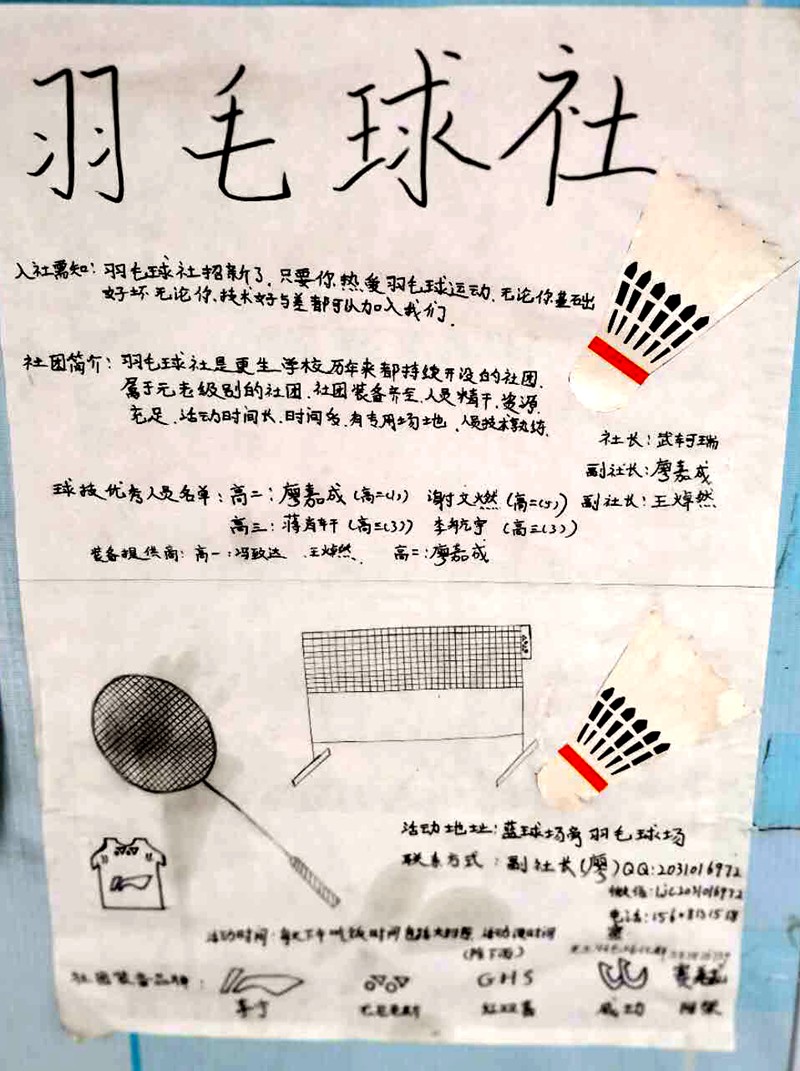 羽毛球社
入社需知：羽毛球社招新了，只要你热爱羽毛球运动，无论你基础
好坏 无论你技术好与差都可以加入我们．
社团简介：羽毛球社是更生学校历年来都持续开设的社团．
属于元老级别的社团．社团装备齐全．人员精干．资源
充足．活动时间长．时间多．有专用场地．人员技术熟练．
社长：武轲瑞
副社长：廖嘉成
副社长：王焯然
球技优秀人员名单：高二：廖嘉成（高二(1)） 谢文燃（高二(5)）
高三：蒋 轩（高三(3)） 李航宇（高三(3)）
装备提供商：高一：冯致达 王焯然 高二：廖嘉成
活动地址：蓝球场旁羽毛球场
联系方式：副社长(廖)QQ：2031016972
微信：LJC2031016972
电话：
活动时间：每天下午吃饭时间 活动课时间
（除下雨）
社团装备品牌：
李宁 尤尼克斯 GHS 红双喜 威克多